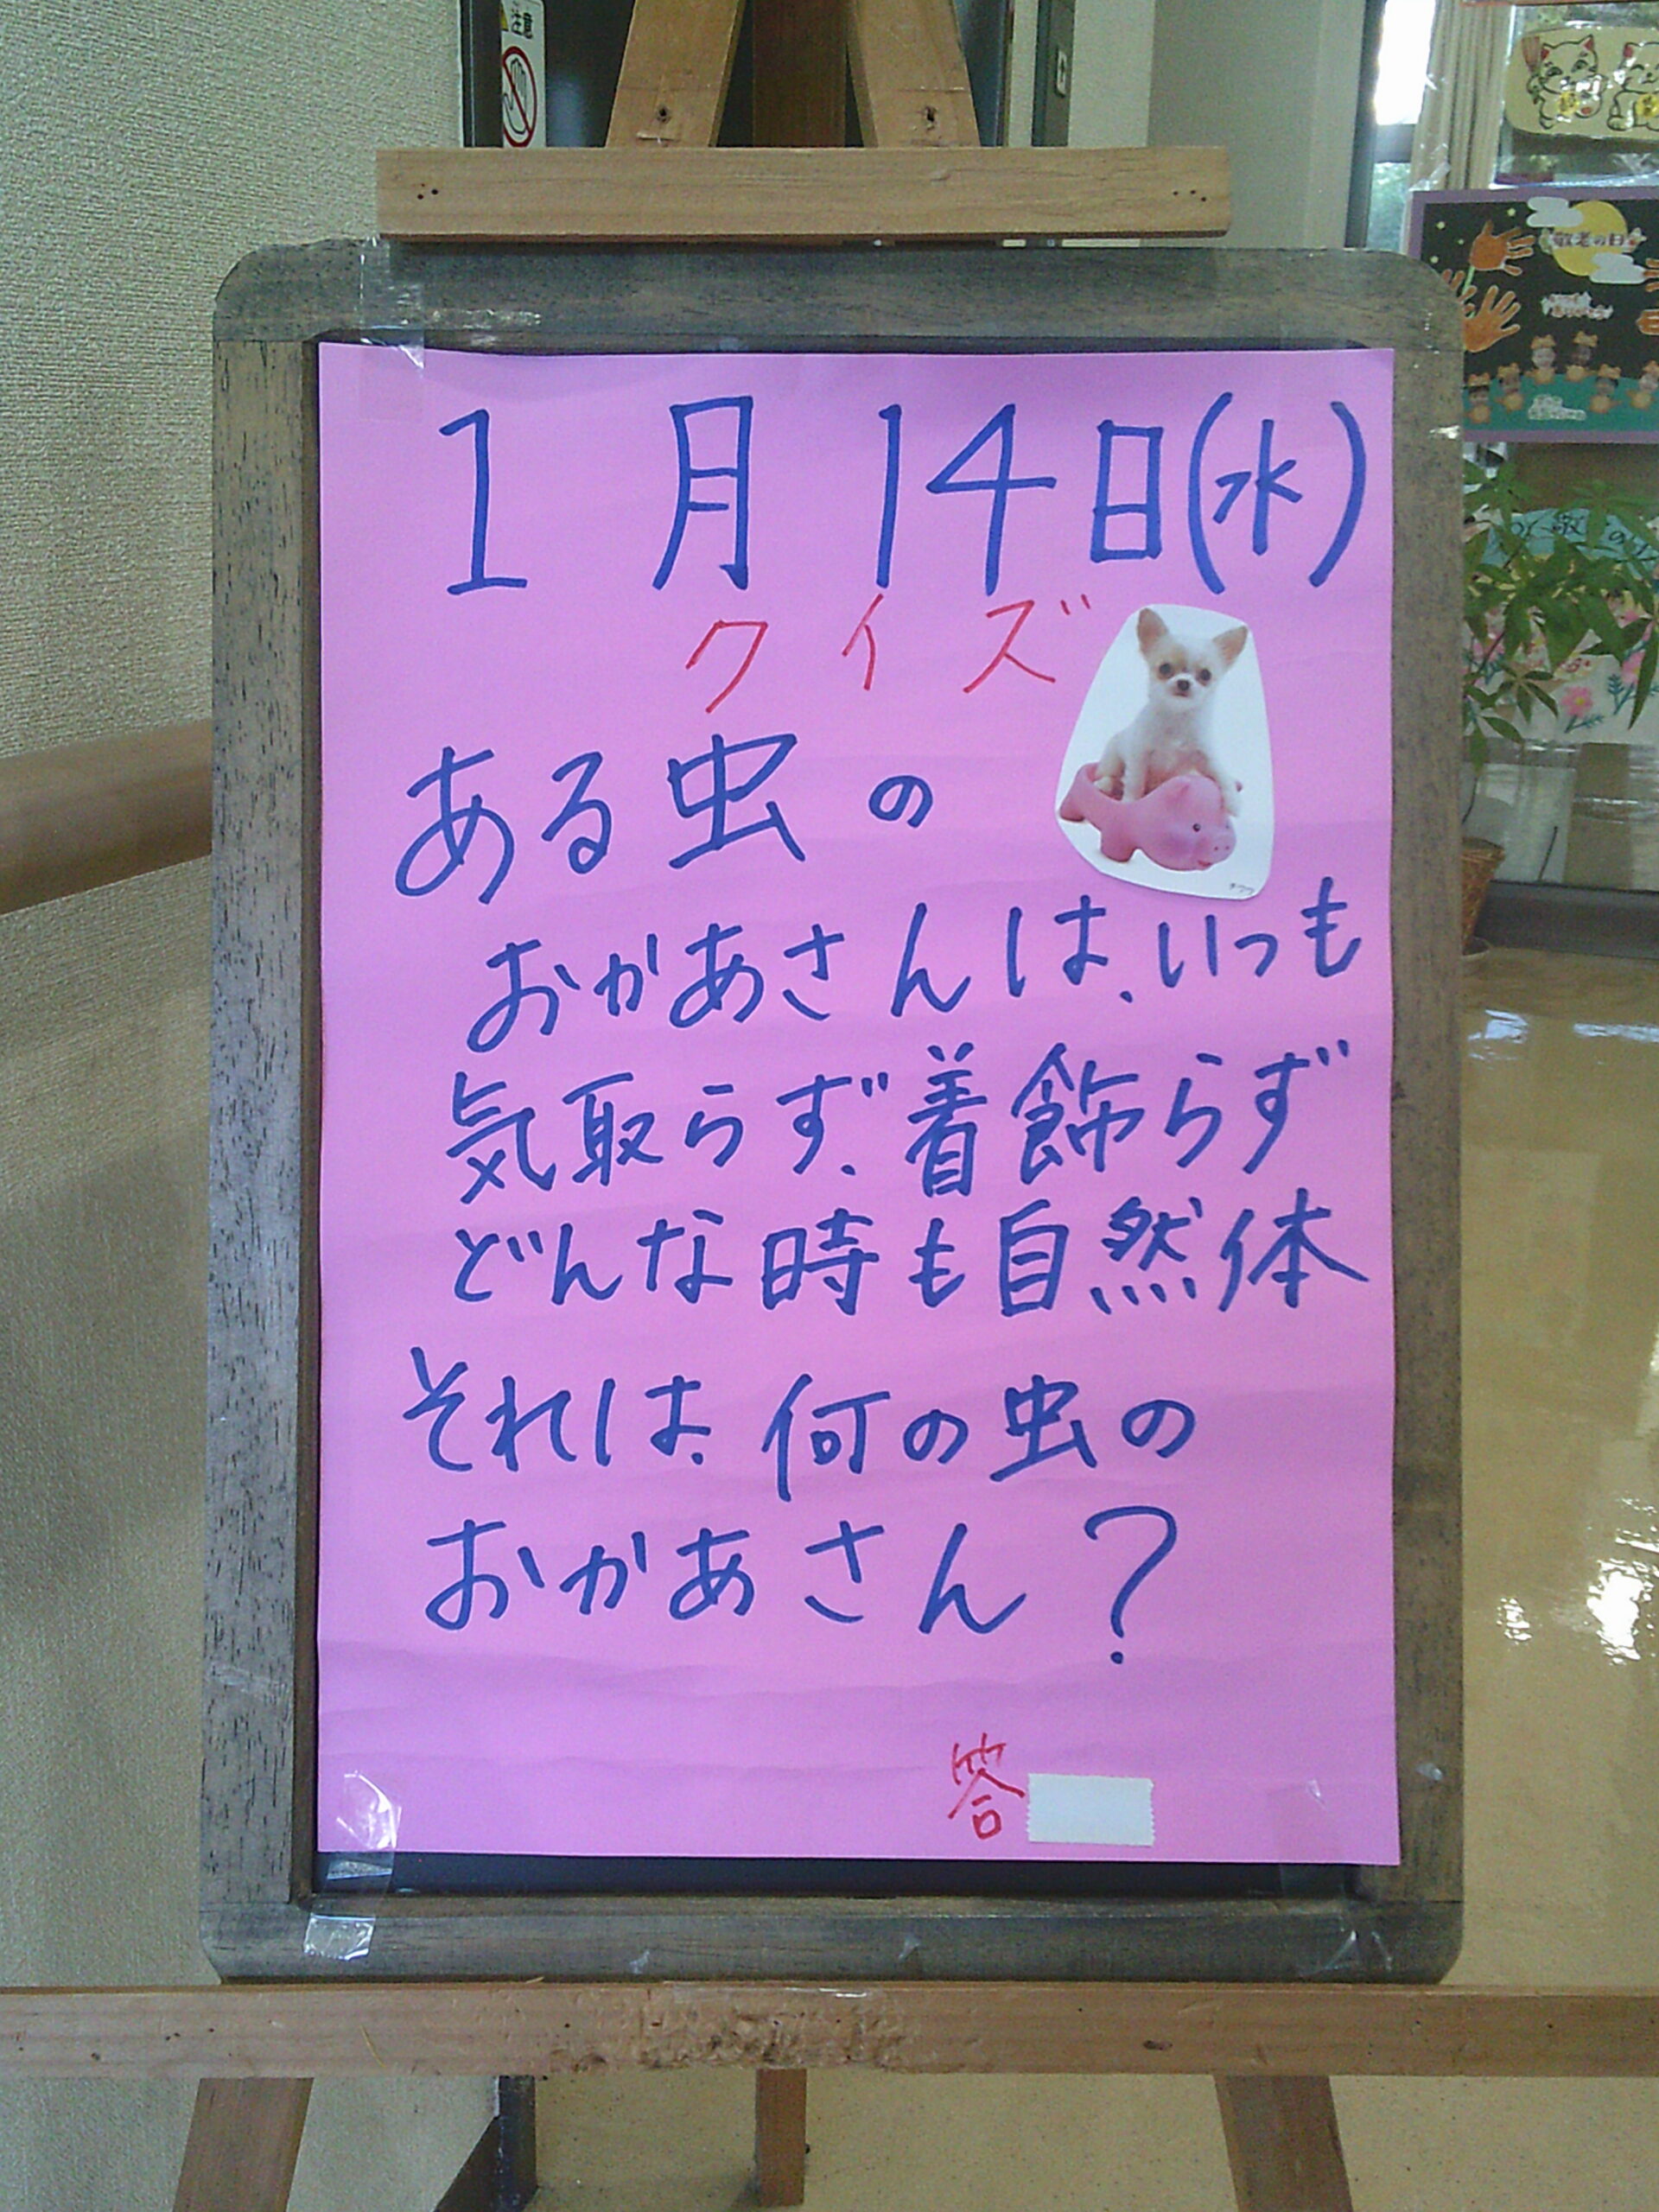 注意
敬老の日
1月14日(水)
クイズ
ある虫の
おかあさんは、いつも
気取らず、着飾らず
どんな時も自然体
それは、何の虫の
おかあさん?
答